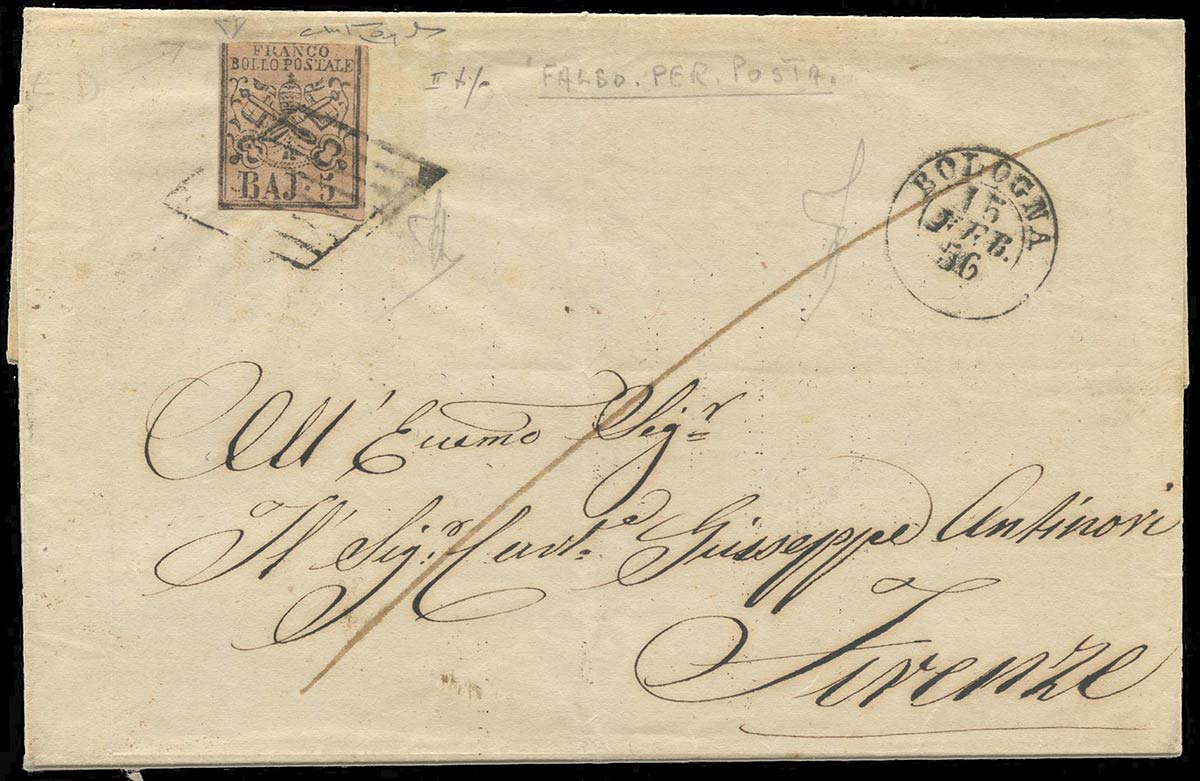 FRANCO
BOLLO POSTALE
BAJ: 5
FALSO. PER. POSTA.
BOLOGNA
15
FEB.
56
All' Eccmo Sigr
Il Sigr Cavte Giuseppe Antinori
Firenze